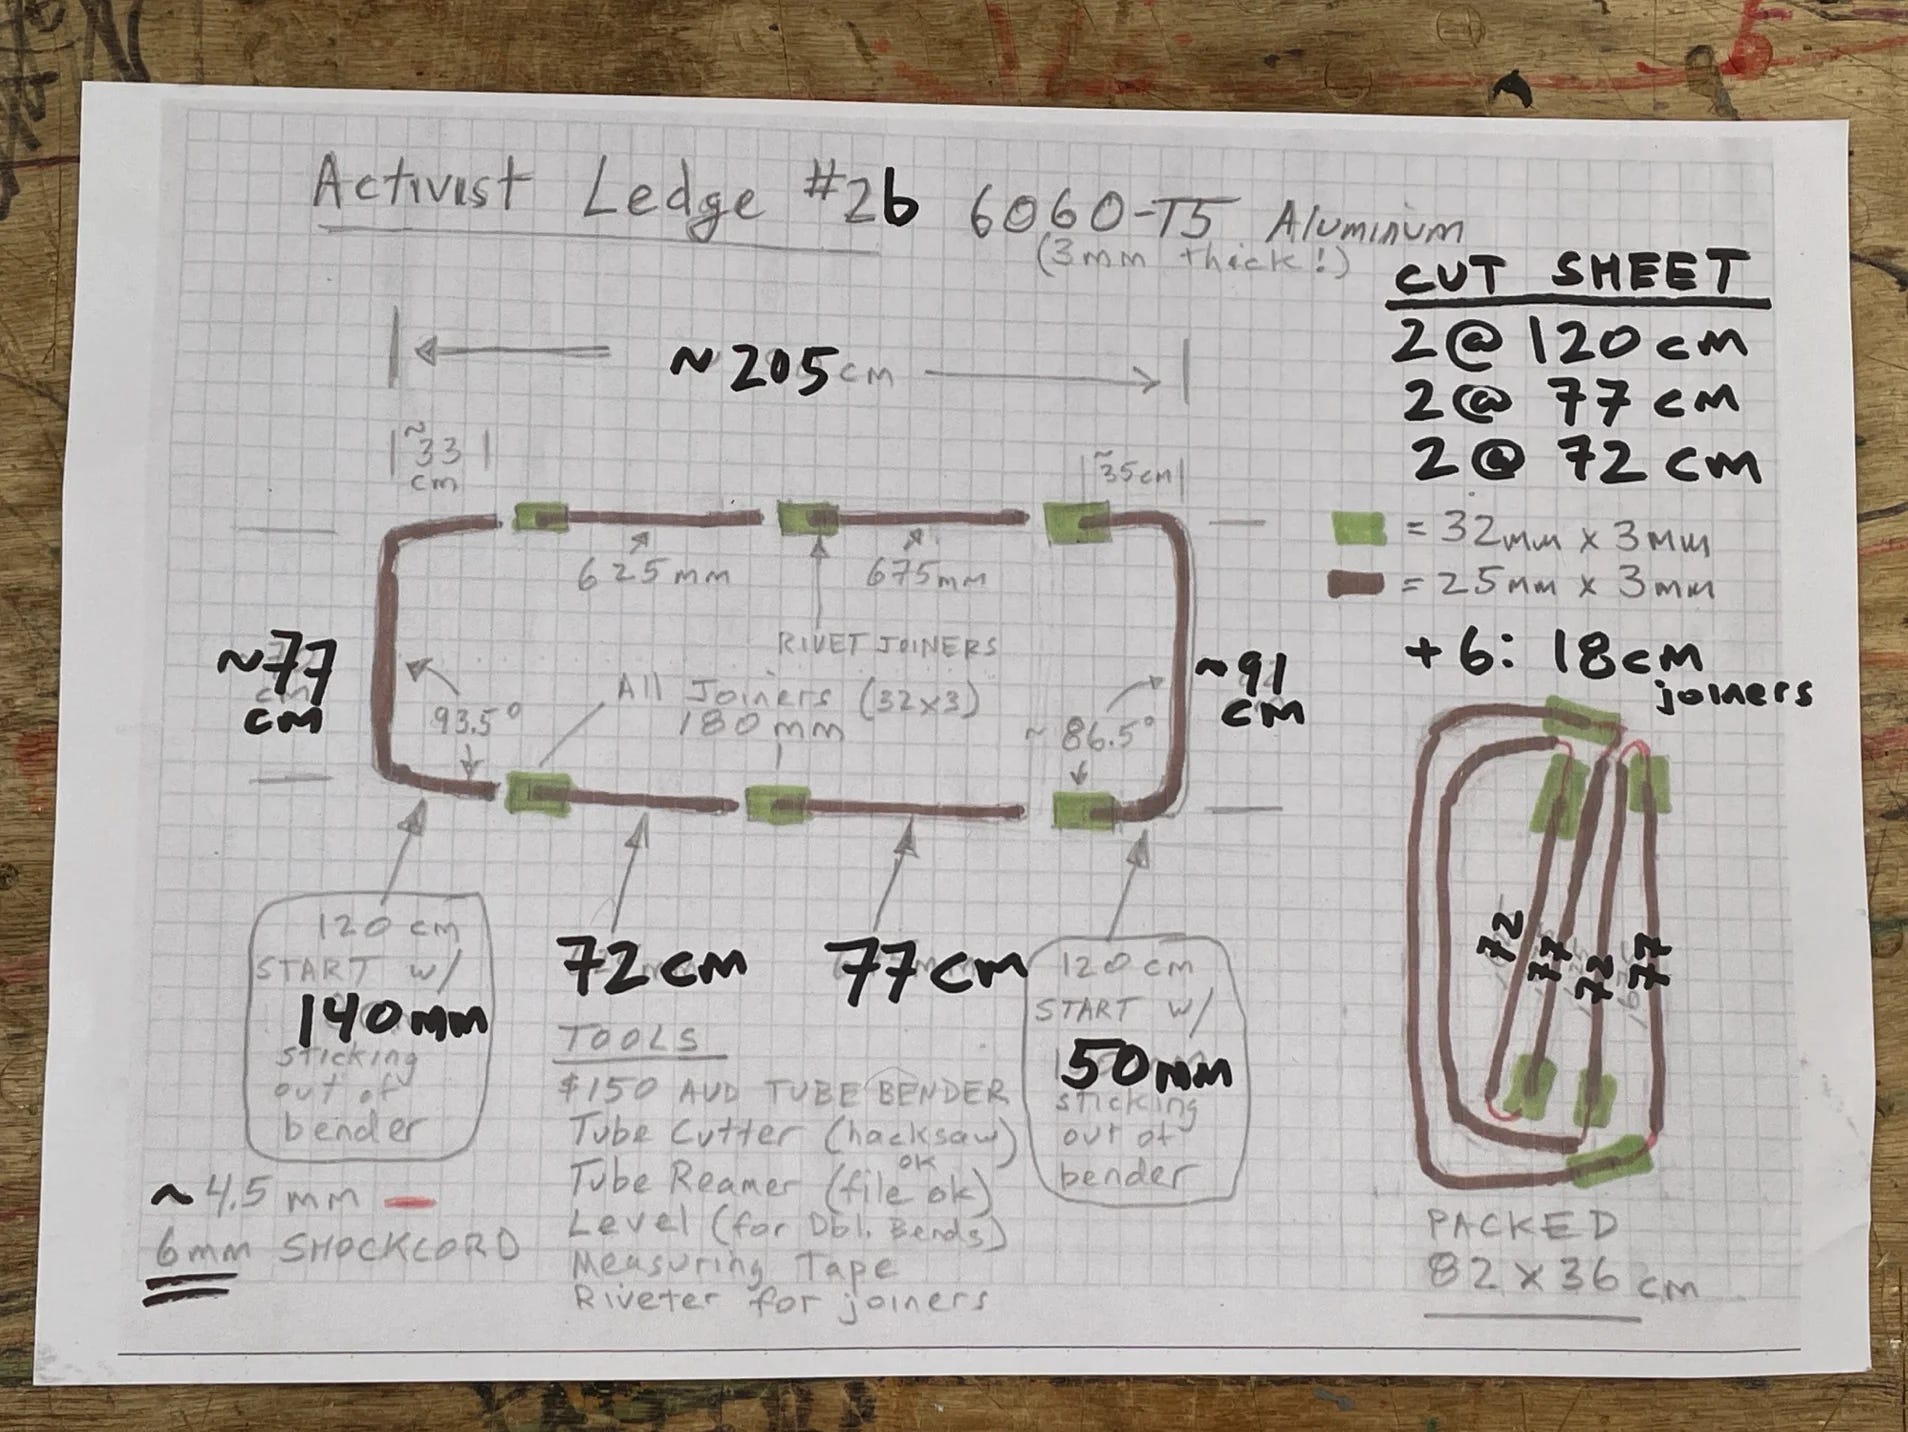 Activist Ledge #2b 6060-T5 Aluminum
(3mm thick!)
CUT SHEET
2@ 120 cm
2@ 77 cm
2@ 72 cm
= 32mm x 3mm
= 25mm x 3mm
+6: 18cm
joiners
~205cm
~33
cm
~35cm
625mm
675mm
RIVET JOINERS
All Joiners (32x3)
180mm
~77
cm
93.5°
~86.5°
~91
cm
120 cm
START w/
140mm
sticking
out of
bender
72cm
77cm
120 cm
START w/
50mm
sticking
out of
bender
TOOLS
$150 AUD TUBE BENDER
Tube Cutter (hacksaw)
ok
Tube Reamer (file ok)
Level (for Dbl. Bends)
Measuring Tape
Riveter for joiners
~4.5 mm
6mm SHOCKCORD
72
77
72
77
PACKED
82 x 36 cm